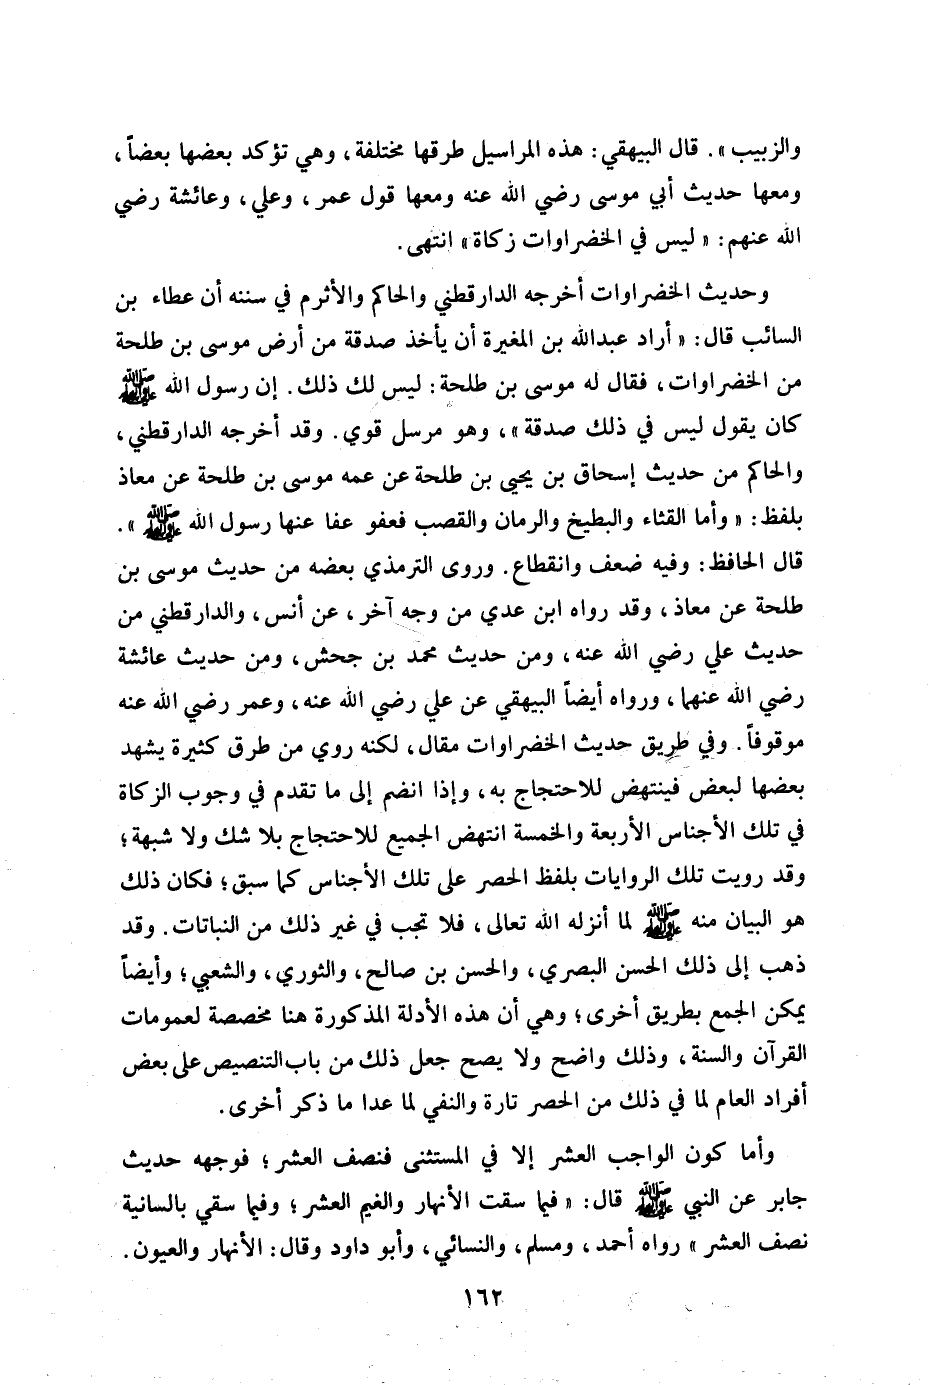 والزبيب». قال البيهقي: هذه المراسيل طرقها مختلفة، وهي تؤكد بعضها بعضاً،
ومعها حديث أبي موسى رضي الله عنه ومعها قول عمر، وعلي، وعائشة رضي
الله عنهم: «ليس في الخضراوات زكاة» انتهى.
وحديث الخضراوات أخرجه الدارقطني والحاكم والأثرم في سننه أن عطاء بن
السائب قال: «أراد عبدالله بن المغيرة أن يأخذ صدقة من أرض موسى بن طلحة
من الخضراوات، فقال له موسى بن طلحة: ليس لك ذلك. إن رسول الله ﷺ
كان يقول ليس في ذلك صدقة»، وهو مرسل قوي. وقد أخرجه الدارقطني،
والحاكم من حديث إسحاق بن يحيى بن طلحة عن عمه موسى بن طلحة عن معاذ
بلفظ: «وأما القثاء والبطيخ والرمان والقصب فعفو عفا عنها رسول الله ﷺ».
قال الحافظ: وفيه ضعف وانقطاع. وروى الترمذي بعضه من حديث موسى بن
طلحة عن معاذ، وقد رواه ابن عدي من وجه آخر، عن أنس، والدارقطني من
حديث علي رضي الله عنه، ومن حديث محمد بن جحش، ومن حديث عائشة
رضي الله عنهما، ورواه أيضاً البيهقي عن علي رضي الله عنه، وعمر رضي الله عنه
موقوفاً. وفي طريق حديث الخضراوات مقال، لكنه روي من طرق كثيرة يشهد
بعضها لبعض فينتهض للاحتجاج به، وإذا انضم إلى ما تقدم في وجوب الزكاة
في تلك الأجناس الأربعة والخمسة انتهض الجميع للاحتجاج بلا شك ولا شبهة؛
وقد رويت تلك الروايات بلفظ الحصر على تلك الأجناس كما سبق؛ فكان ذلك
هو البيان منه ﷺ لما أنزله الله تعالى، فلا تجب في غير ذلك من النباتات. وقد
ذهب إلى ذلك الحسن البصري، والحسن بن صالح، والثوري، والشعبي؛ وأيضاً
يمكن الجمع بطريق أخرى؛ وهي أن هذه الأدلة المذكورة هنا مخصصة لعمومات
القرآن والسنة، وذلك واضح ولا يصح جعل ذلك من باب التنصيص على بعض
أفراد العام لما في ذلك من الحصر تارة والنفي لما عدا ما ذكر أخرى.
وأما كون الواجب العشر إلا في المستثنى فنصف العشر؛ فوجهه حديث
جابر عن النبي ﷺ قال: «فيما سقت الأنهار والغيم العشر؛ وفيما سقي بالسانية
نصف العشر» رواه أحمد، ومسلم، والنسائي، وأبو داود وقال: الأنهار والعيون.
١٦٢